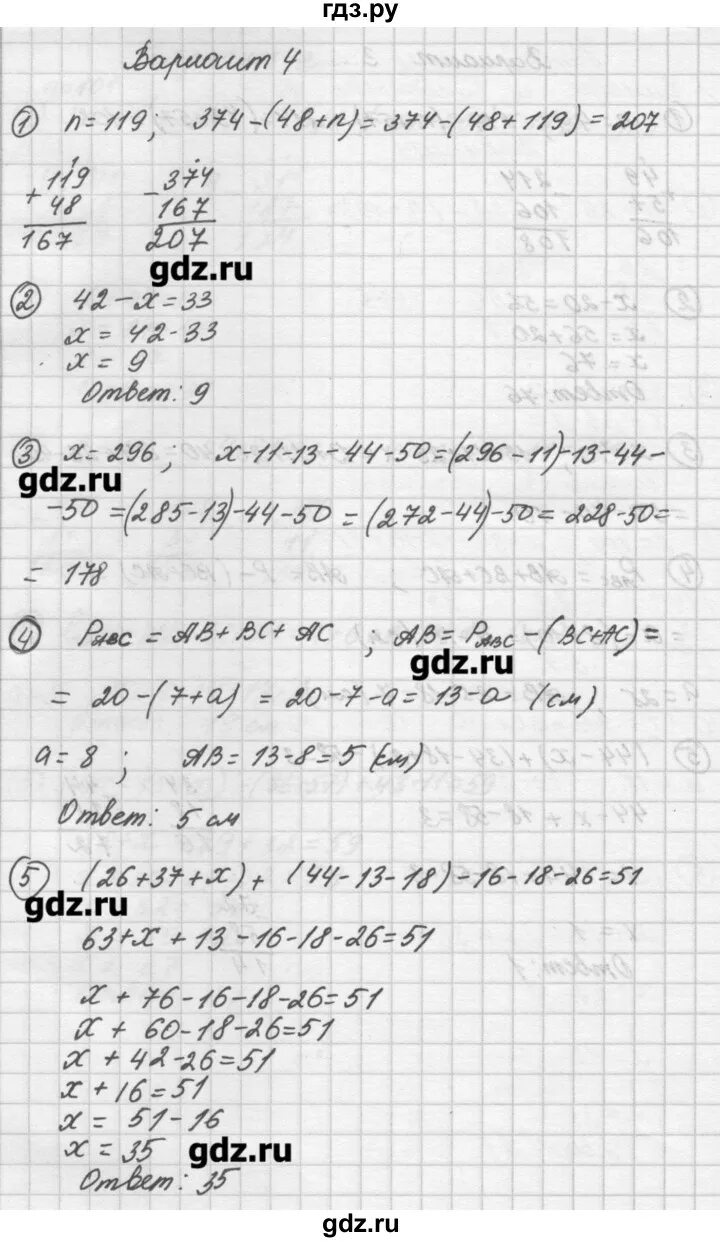 гдз.ру
Вариант 4
① n = 119; 374-(48+n) = 374-(48+119) = 207
+119 -374
48 167
167 207
gdz.ru
② 42 - x = 33
x = 42-33
x = 9
Ответ: 9
③ x = 296; x-11-13-44-50=(296-11)-13-44-
gdz.ru
-50 =(285-13)-44-50 = (272-44)-50= 228-50=
= 178
④ PABC = AB+BC+AC ; AB = PABC -(BC+AC) =
gdz.ru
= 20-(7+a) = 20-7-a = 13-a (см)
a = 8 ; AB = 13-8 = 5 (см)
Ответ: 5 см
⑤ (26+37+x) + (44-13-18)-16-18-26=51
gdz.ru
63+x + 13-16-18-26=51
x + 76-16-18-26=51
x + 60-18-26=51
x + 42-26=51
x + 16=51
x = 51-16
x = 35
gdz.ru
Ответ: 35
gdz.ru